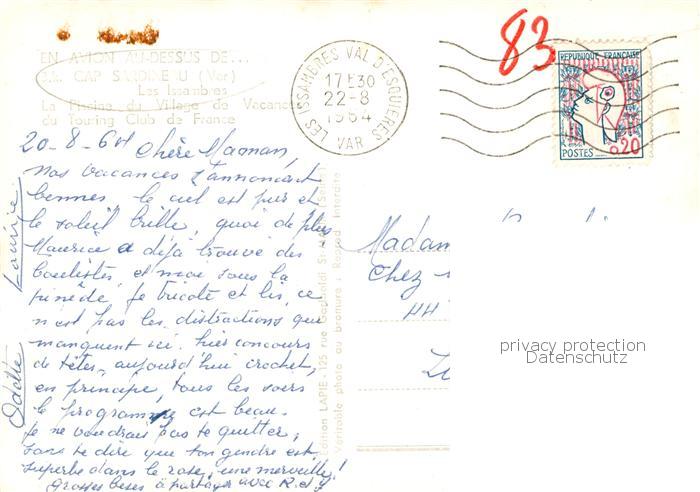 EN AVION AU-DESSUS DE...
CAP (Var)
Les Issambres
La Piscine du Village de Vacances
du Touring Club de France
LES ISSAMBRES VAL D'ESQUIERES
17H30
22-8
1964
VAR
83
REPUBLIQUE FRANÇAISE
POSTES
0,20
20-8-64 Chère Maman,
Nos vacances s'annoncent
bonnes, le ciel est pur et
le soleil brille, quoi de plus
Maurice a déjà trouvé des
boulistes, et moi sous la
pinède, je tricote et lis, ce
n'est pas les distractions que
manquent ici. hier concours
de têtes, aujourd'hui crochet,
en principe, tous les soirs
le programme est beau.
Je ne voudrais pas te quitter,
sans te dire que ton gendre est
superbe dans le rose, une merveille!
Grosses bises à partager avec R. et
Odette
Madam
Chez
44
Edition LAPIE, 125 rue
Véritable photo au bromure - Reprod. interdite
privacy protection
Datenschutz